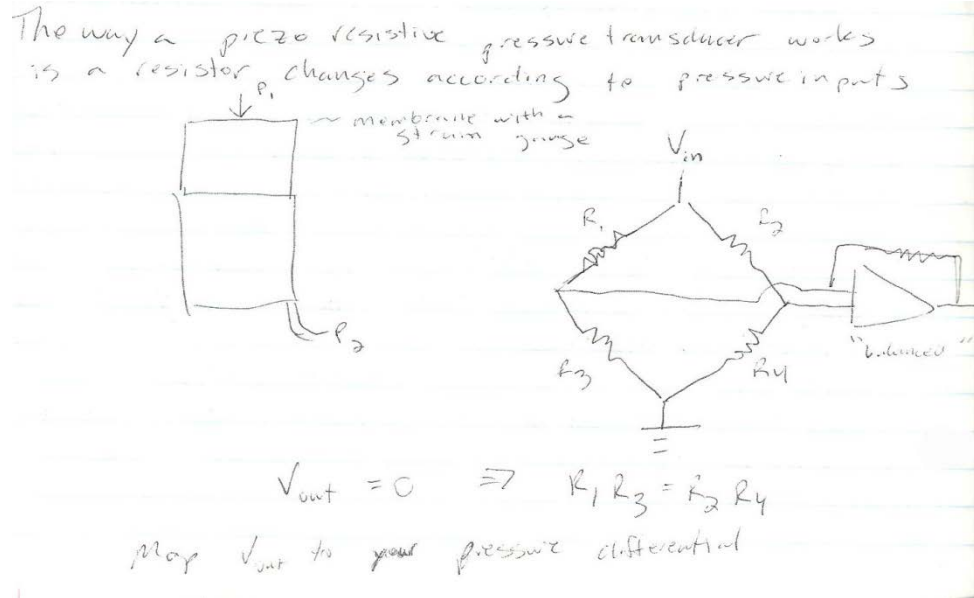 The way a piezo resistive pressure transducer works
is a resistor changes according to pressure inputs
P₁
membrane with a
strain gauge
P₂
Vin
R₁
R₂
R₃
R₄
"balanced"
Vout = 0 ⇒ R₁ R₃ = R₂ R₄
Map Vout to your pressure differential